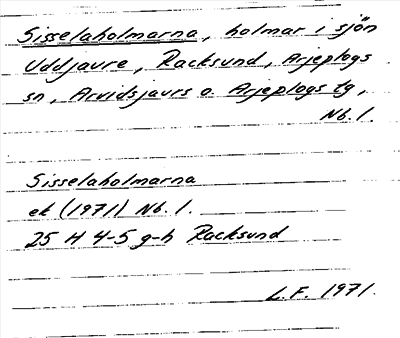 Sisselaholmarna, holmar i sjön
Uddjaure, Racksund, Arjeplogs
sn, Arvidsjaurs o. Arjeplogs tg,
Nb. l.
Sisselaholmarna
ek (1971) Nb. l.
25 H 4-5 g-h Racksund
L.F. 1971.